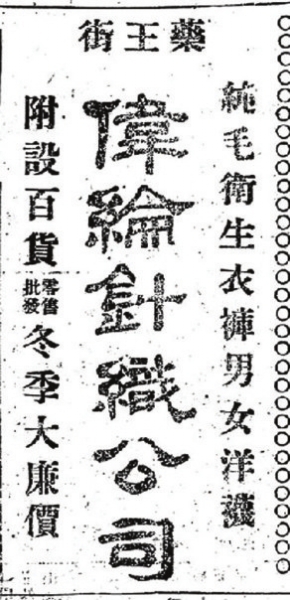 藥王街
純毛衛生衣褲男女洋襪
偉綸針織公司
附設百貨零售批發冬季大廉價